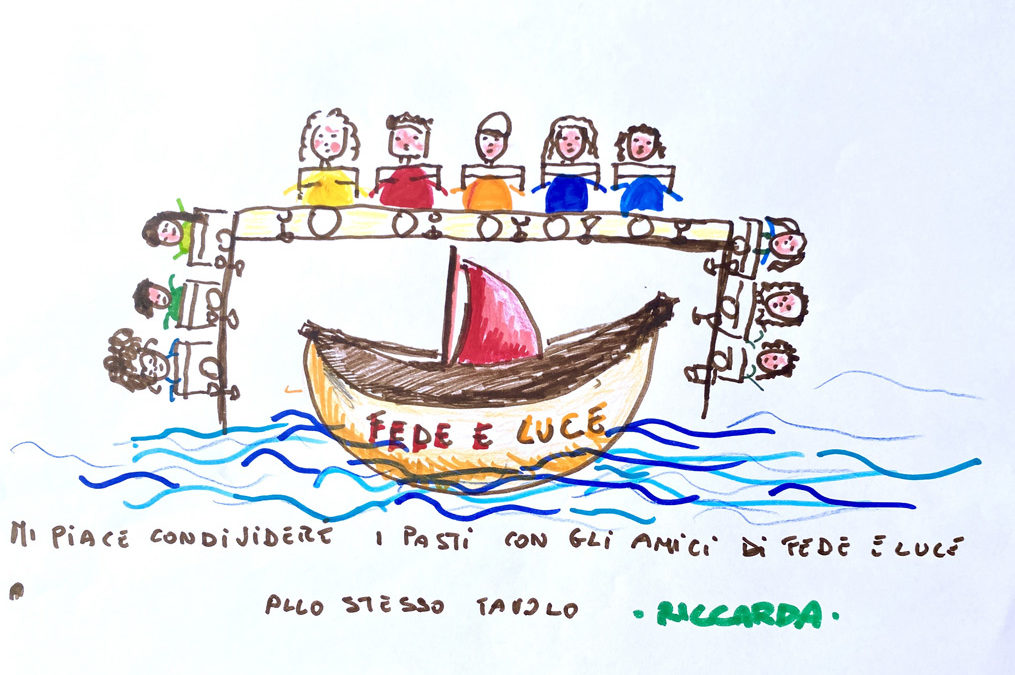 FEDE E LUCE
MI PIACE CONDIVIDERE I PASTI CON GLI AMICI DI FEDE E LUCE
ALLO STESSO TAVOLO • RICCARDA •